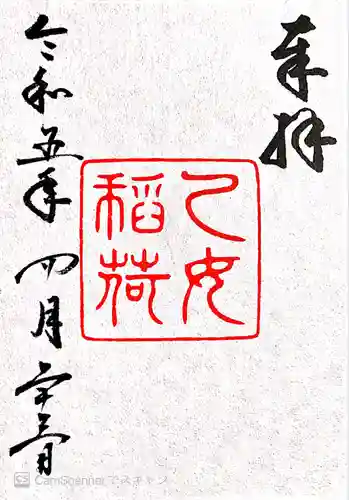 奉拝
乙女
稲荷
令和五年四月二十三日
CS CamScanner でスキャン